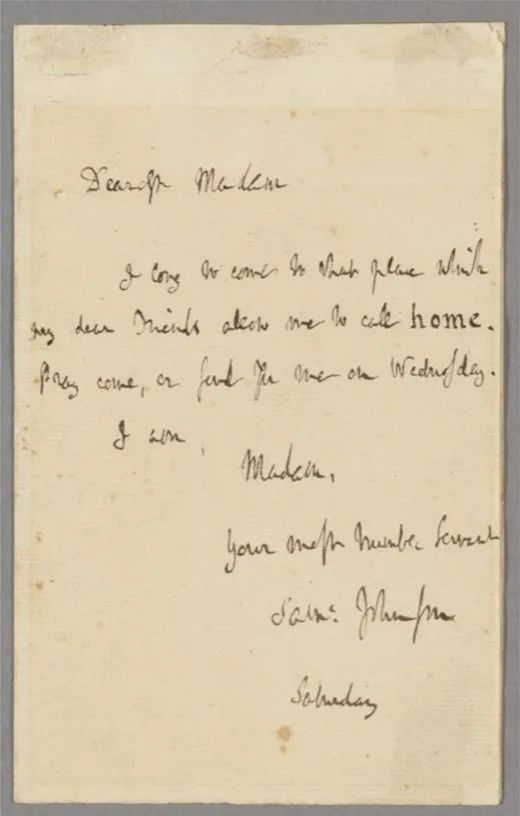 Dearest Madam
I long to come to that place which
my dear Friends allow me to call home.
Pray come, or send for me on Wednesday.
I am,
Madam,
Your most humble Servant
Sam: Johnson
Saturday